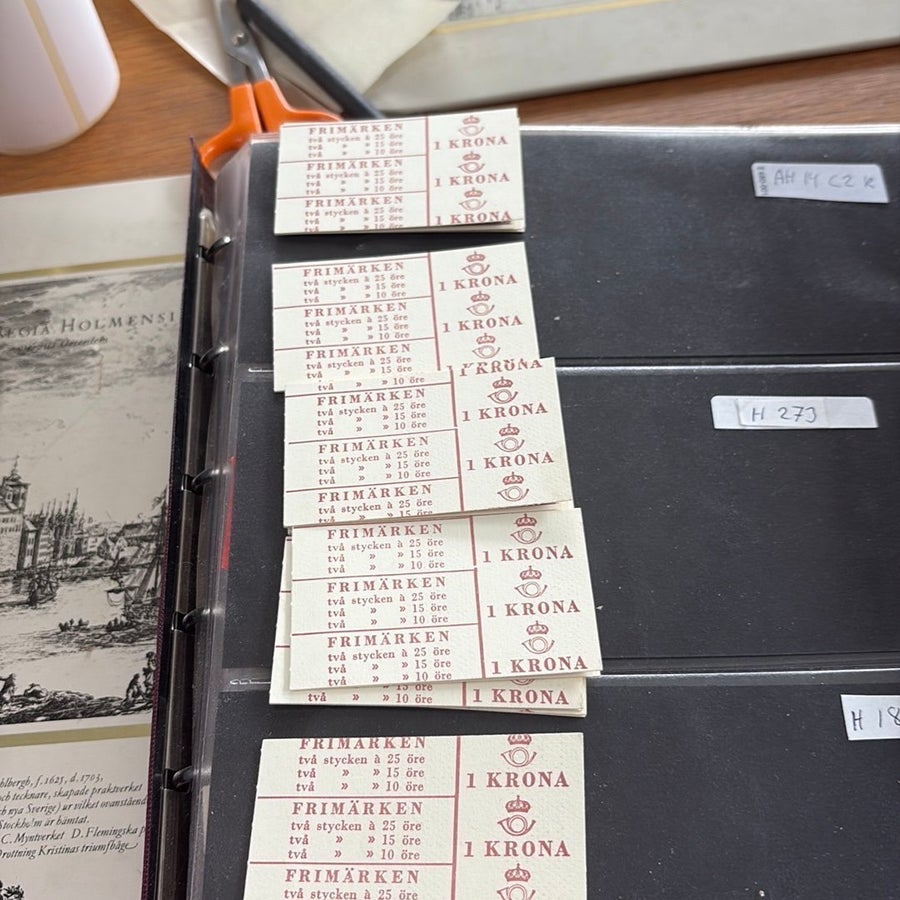 FRIMÄRKEN
två stycken à 25 öre
två » » 15 öre
två » » 10 öre
1 KRONA
FRIMÄRKEN
två stycken à 25 öre
två » » 15 öre
två » » 10 öre
1 KRONA
FRIMÄRKEN
två stycken à 25 öre
två » » 15 öre
två » » 10 öre
1 KRONA
AH 14 C2 k
FRIMÄRKEN
två stycken à 25 öre
två » » 15 öre
två » » 10 öre
1 KRONA
FRIMÄRKEN
två stycken à 25 öre
två » » 15 öre
två » » 10 öre
1 KRONA
FRIMÄRKEN
två stycken à 25 öre
två » » 15 öre
två » » 10 öre
1 KRONA
FRIMÄRKEN
två stycken à 25 öre
två » » 15 öre
två » » 10 öre
1 KRONA
FRIMÄRKEN
två stycken à 25 öre
två » » 15 öre
två » » 10 öre
1 KRONA
FRIMÄRKEN
två stycken à 25 öre
två » » 15 öre
H 273
FRIMÄRKEN
två stycken à 25 öre
två » » 15 öre
två » » 10 öre
1 KRONA
FRIMÄRKEN
två stycken à 25 öre
två » » 15 öre
två » » 10 öre
1 KRONA
FRIMÄRKEN
två stycken à 25 öre
två » » 15 öre
två » » 10 öre
1 KRONA
två » » 15 öre
två » » 10 öre
1 KRONA
H 18
FRIMÄRKEN
två stycken à 25 öre
två » » 15 öre
två » » 10 öre
1 KRONA
FRIMÄRKEN
två stycken à 25 öre
två » » 15 öre
två » » 10 öre
1 KRONA
FRIMÄRKEN
två stycken à 25 öre
REGIA HOLMENSI
hlbergh, f. 1625, d. 1703,
och tecknare, skapade praktverket
ch nya Sverige) ur vilket ovanstående
Stockholm är hämtat.
C. Myntverket D. Flemingska p
Drottning Kristinas triumfbåge